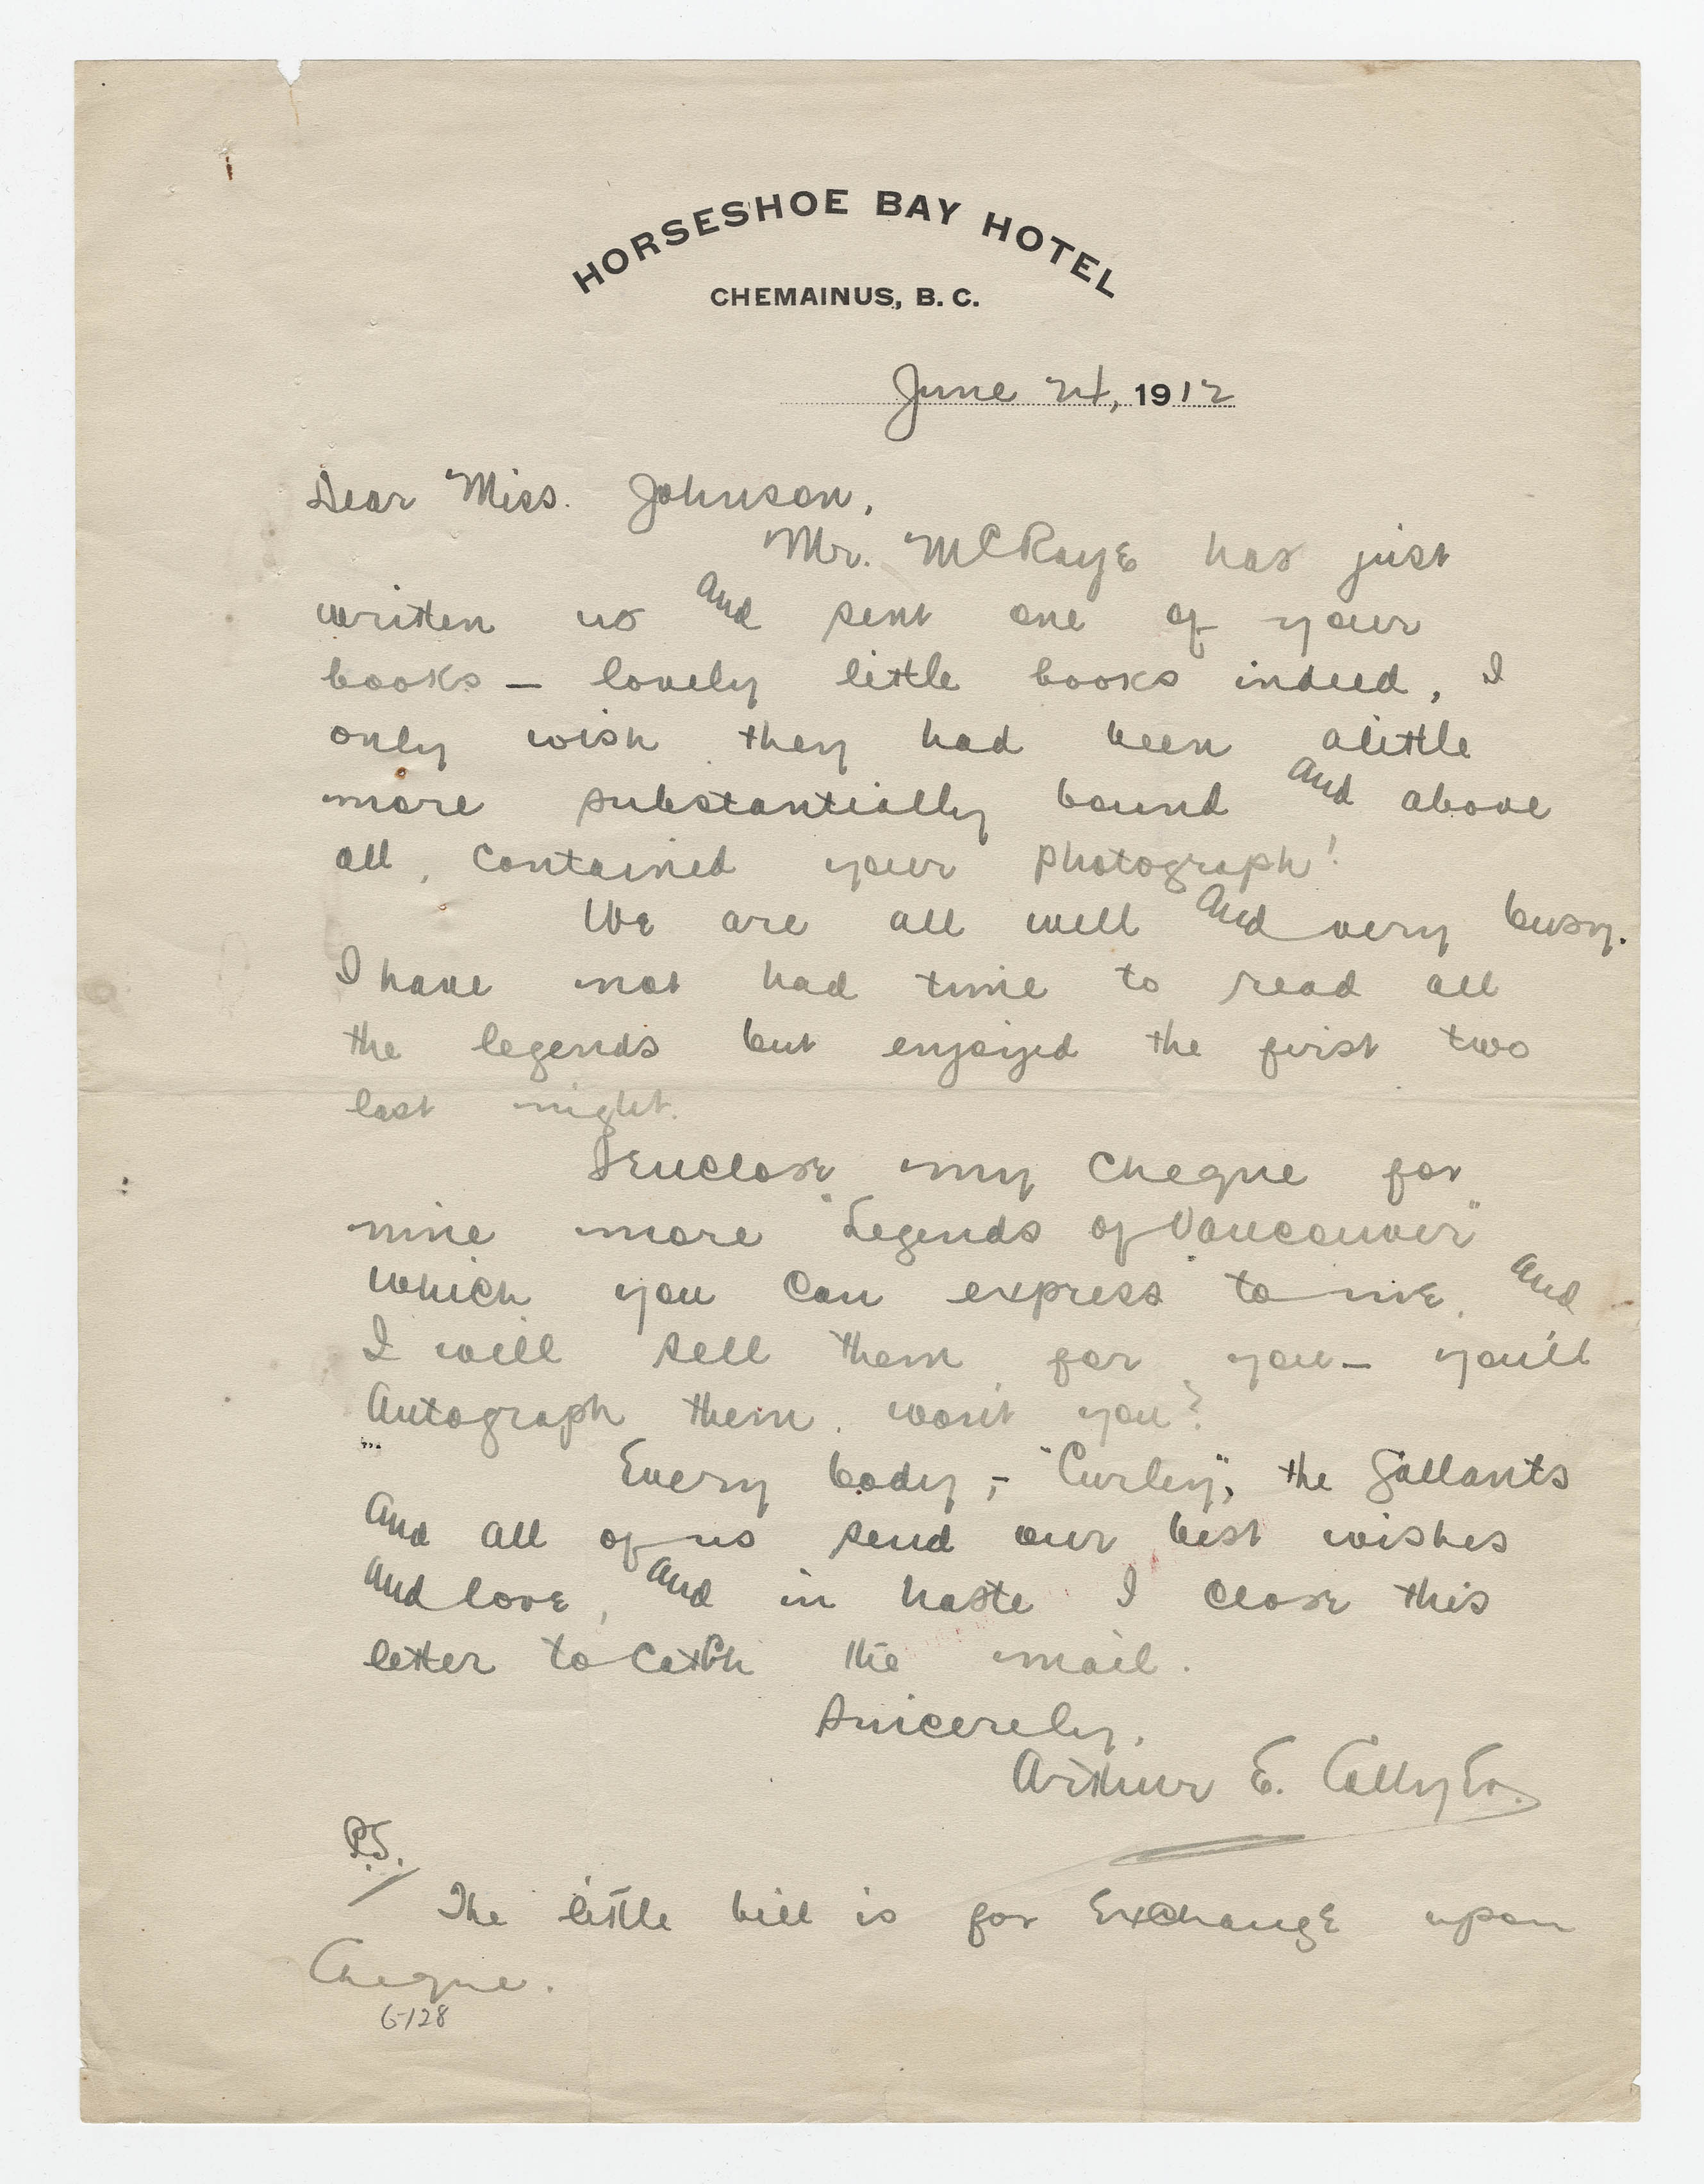 HORSESHOE BAY HOTEL
CHEMAINUS, B. C.
June 24, 1912
Dear Miss. Johnson,
Mr. McRaye has just
written us and sent one of your
books – lovely little books indeed, I
only wish they had been alittle
more substantially bound and above
all, contained your photograph!
We are all well and very busy.
I have not had time to read all
the legends but enjoyed the first two
last night.
I enclose my cheque for
nine more "Legends of Vancouver"
which you can express to me, and
I will sell them for you – you'll
Autograph them, won't you?
Every body, – "Curley", the Gallants
and all of us send our best wishes
and love, and in haste I close this
letter to catch the mail.
Sincerely,
Arthur E.
P.S.
The little bill is for Exchange upon
Cheque.
G-128